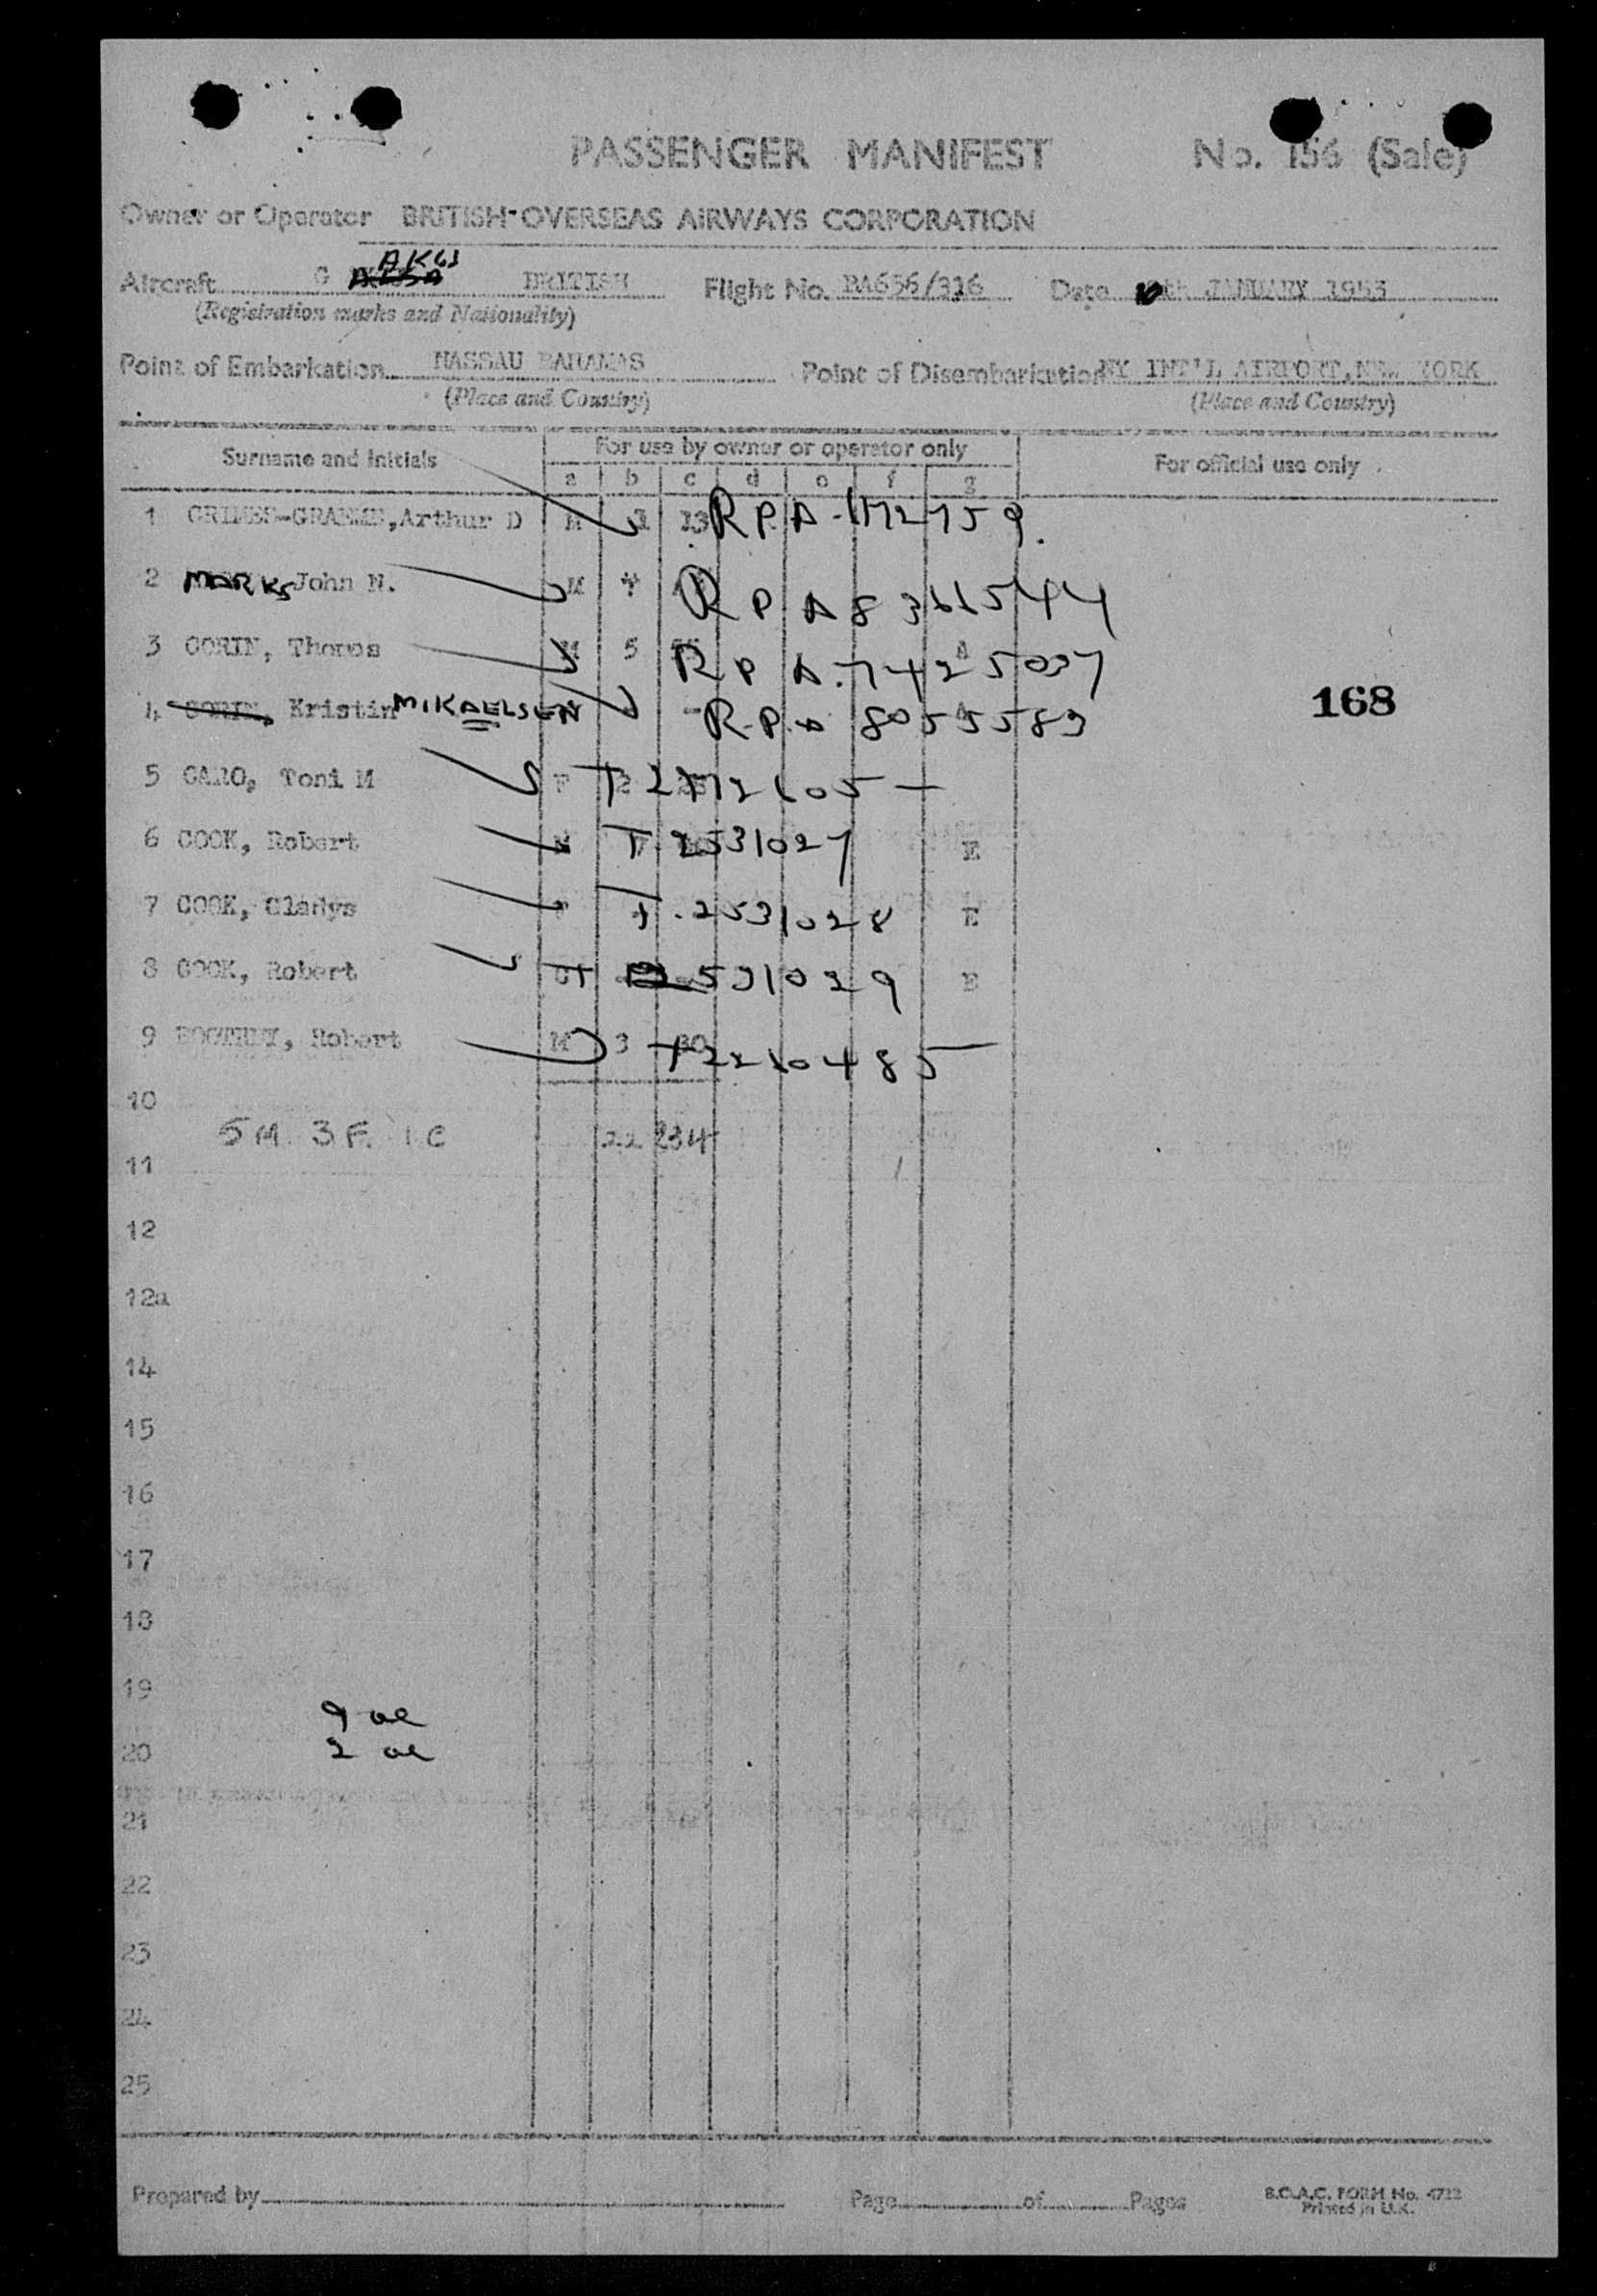 PASSENGER MANIFEST No. 156 (Sale)
Owner or Operator BRITISH OVERSEAS AIRWAYS CORPORATION
Aircraft G BRITISH Flight No. BA656/316 Date JANUARY 1953
(Registration marks and Nationality)
Point of Embarkation NASSAU BAHAMAS Point of Disembarkation NY INT'L AIRPORT, NEW YORK
(Place and Country) (Place and Country)
Surname and Initials For use by owner or operator only For official use only
a b c d e f g
1 Arthur D M 1 13 RPA
2 MARKS John N. M 4 RPA 8366544
3 GORIN, Thomas M 5 RPA. 7425037
4 GORIN, Kristin MIKAELSEN RPA 8055583
168
5 CARO, Toni M F 2
6 COOK, Robert T 2531027 E
7 COOK, Gladys T. 2531028 E
8 COOK, Robert T 2531029 E
9 Robert M 3 T2210485
10
5M. 3F. 1C 22
11
12
12a
14
15
16
17
18
19
9
20
2
21
22
23
24
25
Prepared by Page of Pages B.O.A.C. FORM No. 4722
Printed in U.K.